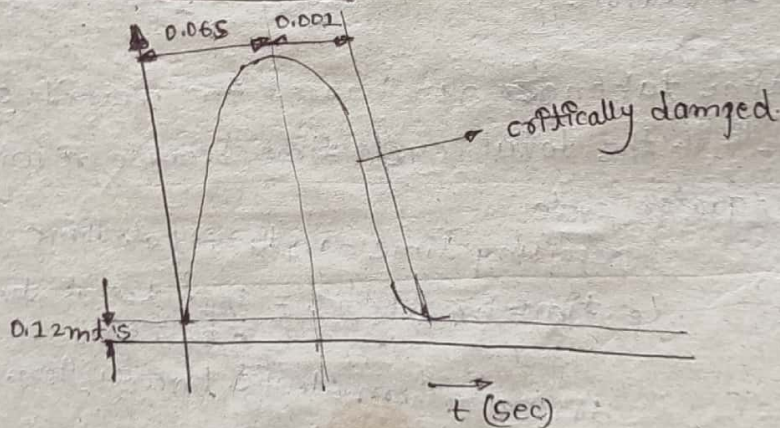 0.065
0.001
critically damped
0.12mt's
t (sec)